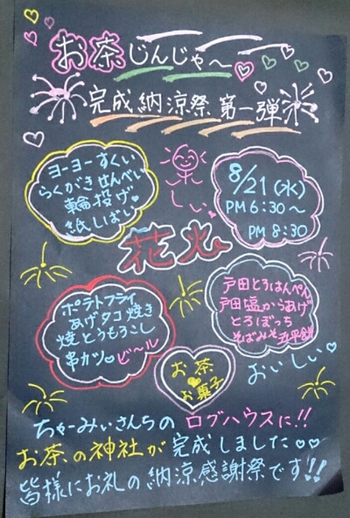 お茶じんじゃ～
完成納涼祭 第一弾
ヨーヨーすくい
らくがきせんべい
輪投げ
紙しばい
楽しい
8/21(水)
PM6:30～
PM8:30
花火
ポテトフライ
あげタコ焼き
焼とうもろこし
串カツ ビール
戸田とろはんぺん
戸田塩からあげ
とろぼっち
そばみそ五平餅
お茶
お菓子
おいしい
ちゃーみぃさんちのログハウスに!!
お茶の神社が完成しました
皆様にお礼の納涼感謝祭です!!